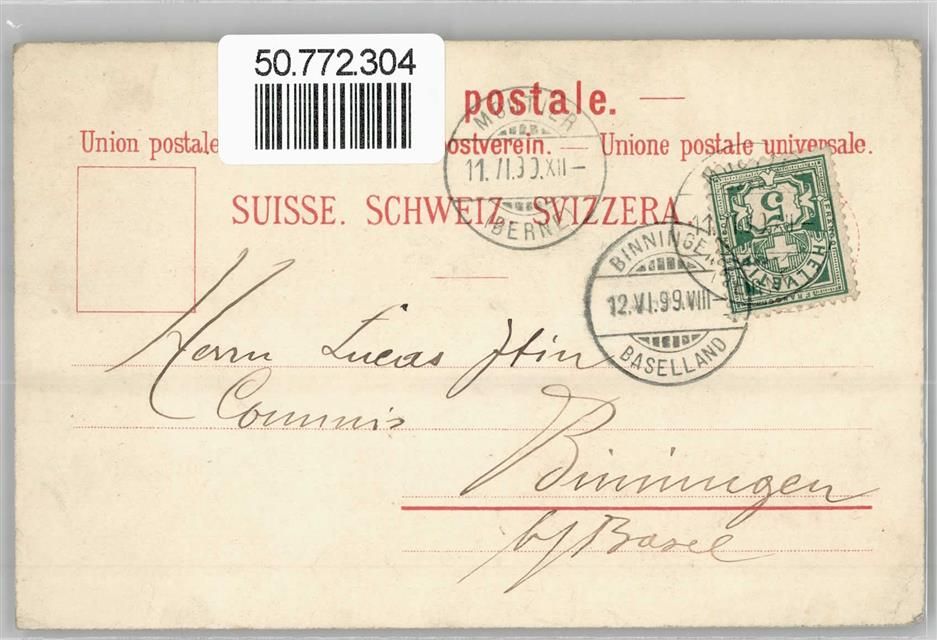 50.772.304
postale.
Union postale
ostverein. — Unione postale universale.
SUISSE. SCHWEIZ. SVIZZERA.
MOUTIER
11.VI.99.XII—
(BERNE)
BINNINGEN
12.VI.99.VIII—
BASELLAND
5
FRANCO
HELVETIA
Herrn Lucas Itin
Commis
Binningen
b/Basel